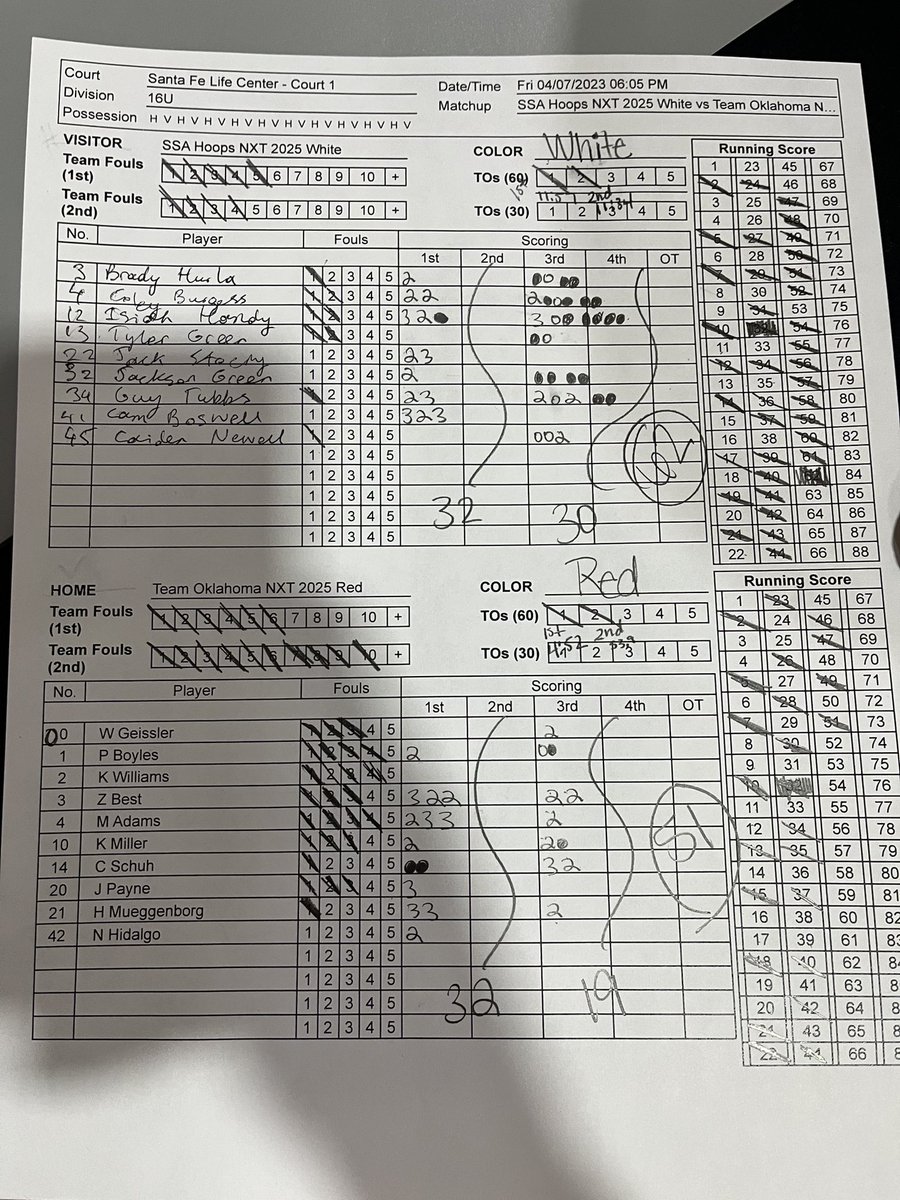 Court Santa Fe Life Center - Court 1 Date/Time Fri 04/07/2023 06:05 PM
Division 16U Matchup SSA Hoops NXT 2025 White vs Team Oklahoma N...
Possession H V H V H V H V H V H V H V H V H V H V
VISITOR SSA Hoops NXT 2025 White COLOR White
Team Fouls (1st) 1 2 3 4 5 6 7 8 9 10 + TOs (60) 1 2 3 4 5
Team Fouls (2nd) 1 2 3 4 5 6 7 8 9 10 + TOs (30) 1 2 3 4 5
No. Player Fouls Scoring
1st 2nd 3rd 4th OT
3 Brady 1 2 3 4 5 2
4 Coley Burgess 1 2 3 4 5 22
12 Isiah Handy 1 2 3 4 5 32
13 Tyler Green 1 2 3 4 5
22 Jack 1 2 3 4 5 23
32 Jackson Green 1 2 3 4 5 2
34 Guy Tubbs 1 2 3 4 5 23 202
41 Cam Boswell 1 2 3 4 5 323
45 Caiden Newell 1 2 3 4 5 002
1 2 3 4 5
1 2 3 4 5
1 2 3 4 5
1 2 3 4 5
1 2 3 4 5
32 30 62
Running Score
1 23 45 67
2 24 46 68
3 25 47 69
4 26 48 70
5 27 49 71
6 28 50 72
7 29 51 73
8 30 52 74
9 31 53 75
10 54 76
11 33 55 77
12 34 56 78
13 35 57 79
14 36 58 80
15 37 59 81
16 38 60 82
17 39 61 83
18 40 84
19 41 63 85
20 42 64 86
21 43 65 87
22 44 66 88
HOME Team Oklahoma NXT 2025 Red COLOR Red
Team Fouls (1st) 1 2 3 4 5 6 7 8 9 10 + TOs (60) 1 2 3 4 5
1st 2nd
Team Fouls (2nd) 1 2 3 4 5 6 7 8 9 10 + TOs (30) 2 3 4 5
No. Player Fouls Scoring
1st 2nd 3rd 4th OT
00 W Geissler 1 2 3 4 5 2
1 P Boyles 1 2 3 4 5 2 00
2 K Williams 1 2 3 4 5
3 Z Best 1 2 3 4 5 322 22
4 M Adams 1 2 3 4 5 233 2
10 K Miller 1 2 3 4 5 2 20
14 C Schuh 1 2 3 4 5 32
20 J Payne 1 2 3 4 5 3
21 H Mueggenborg 1 2 3 4 5 33 2
42 N Hidalgo 1 2 3 4 5 2
1 2 3 4 5
1 2 3 4 5
1 2 3 4 5
1 2 3 4 5
32 19 51
Running Score
1 23 45 67
2 24 46 68
3 25 47 69
4 26 48 70
5 27 49 71
6 28 50 72
7 29 51 73
8 30 52 74
9 31 53 75
10 32 54 76
11 33 55 77
12 34 56 78
13 35 57 79
14 36 58 80
15 37 59 81
16 38 60 82
17 39 61 83
18 40 62 84
19 41 63 8
20 42 64 8
21 43 65 8
22 44 66 8